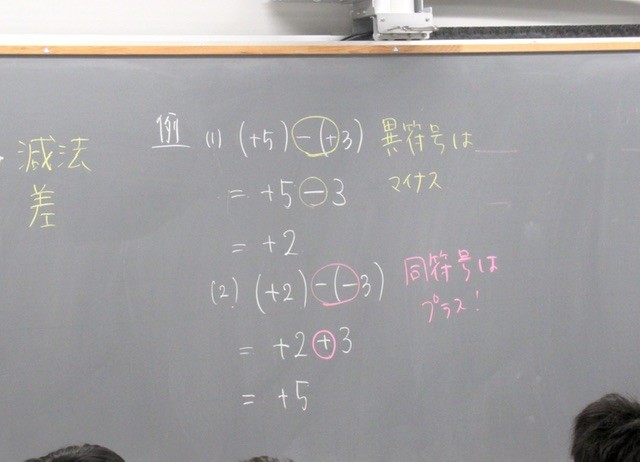 減法
差
例 (1) (+5)-(+3) 異符号は
マイナス
= +5-3
= +2
(2) (+2)-(-3) 同符号は
プラス!
= +2+3
= +5